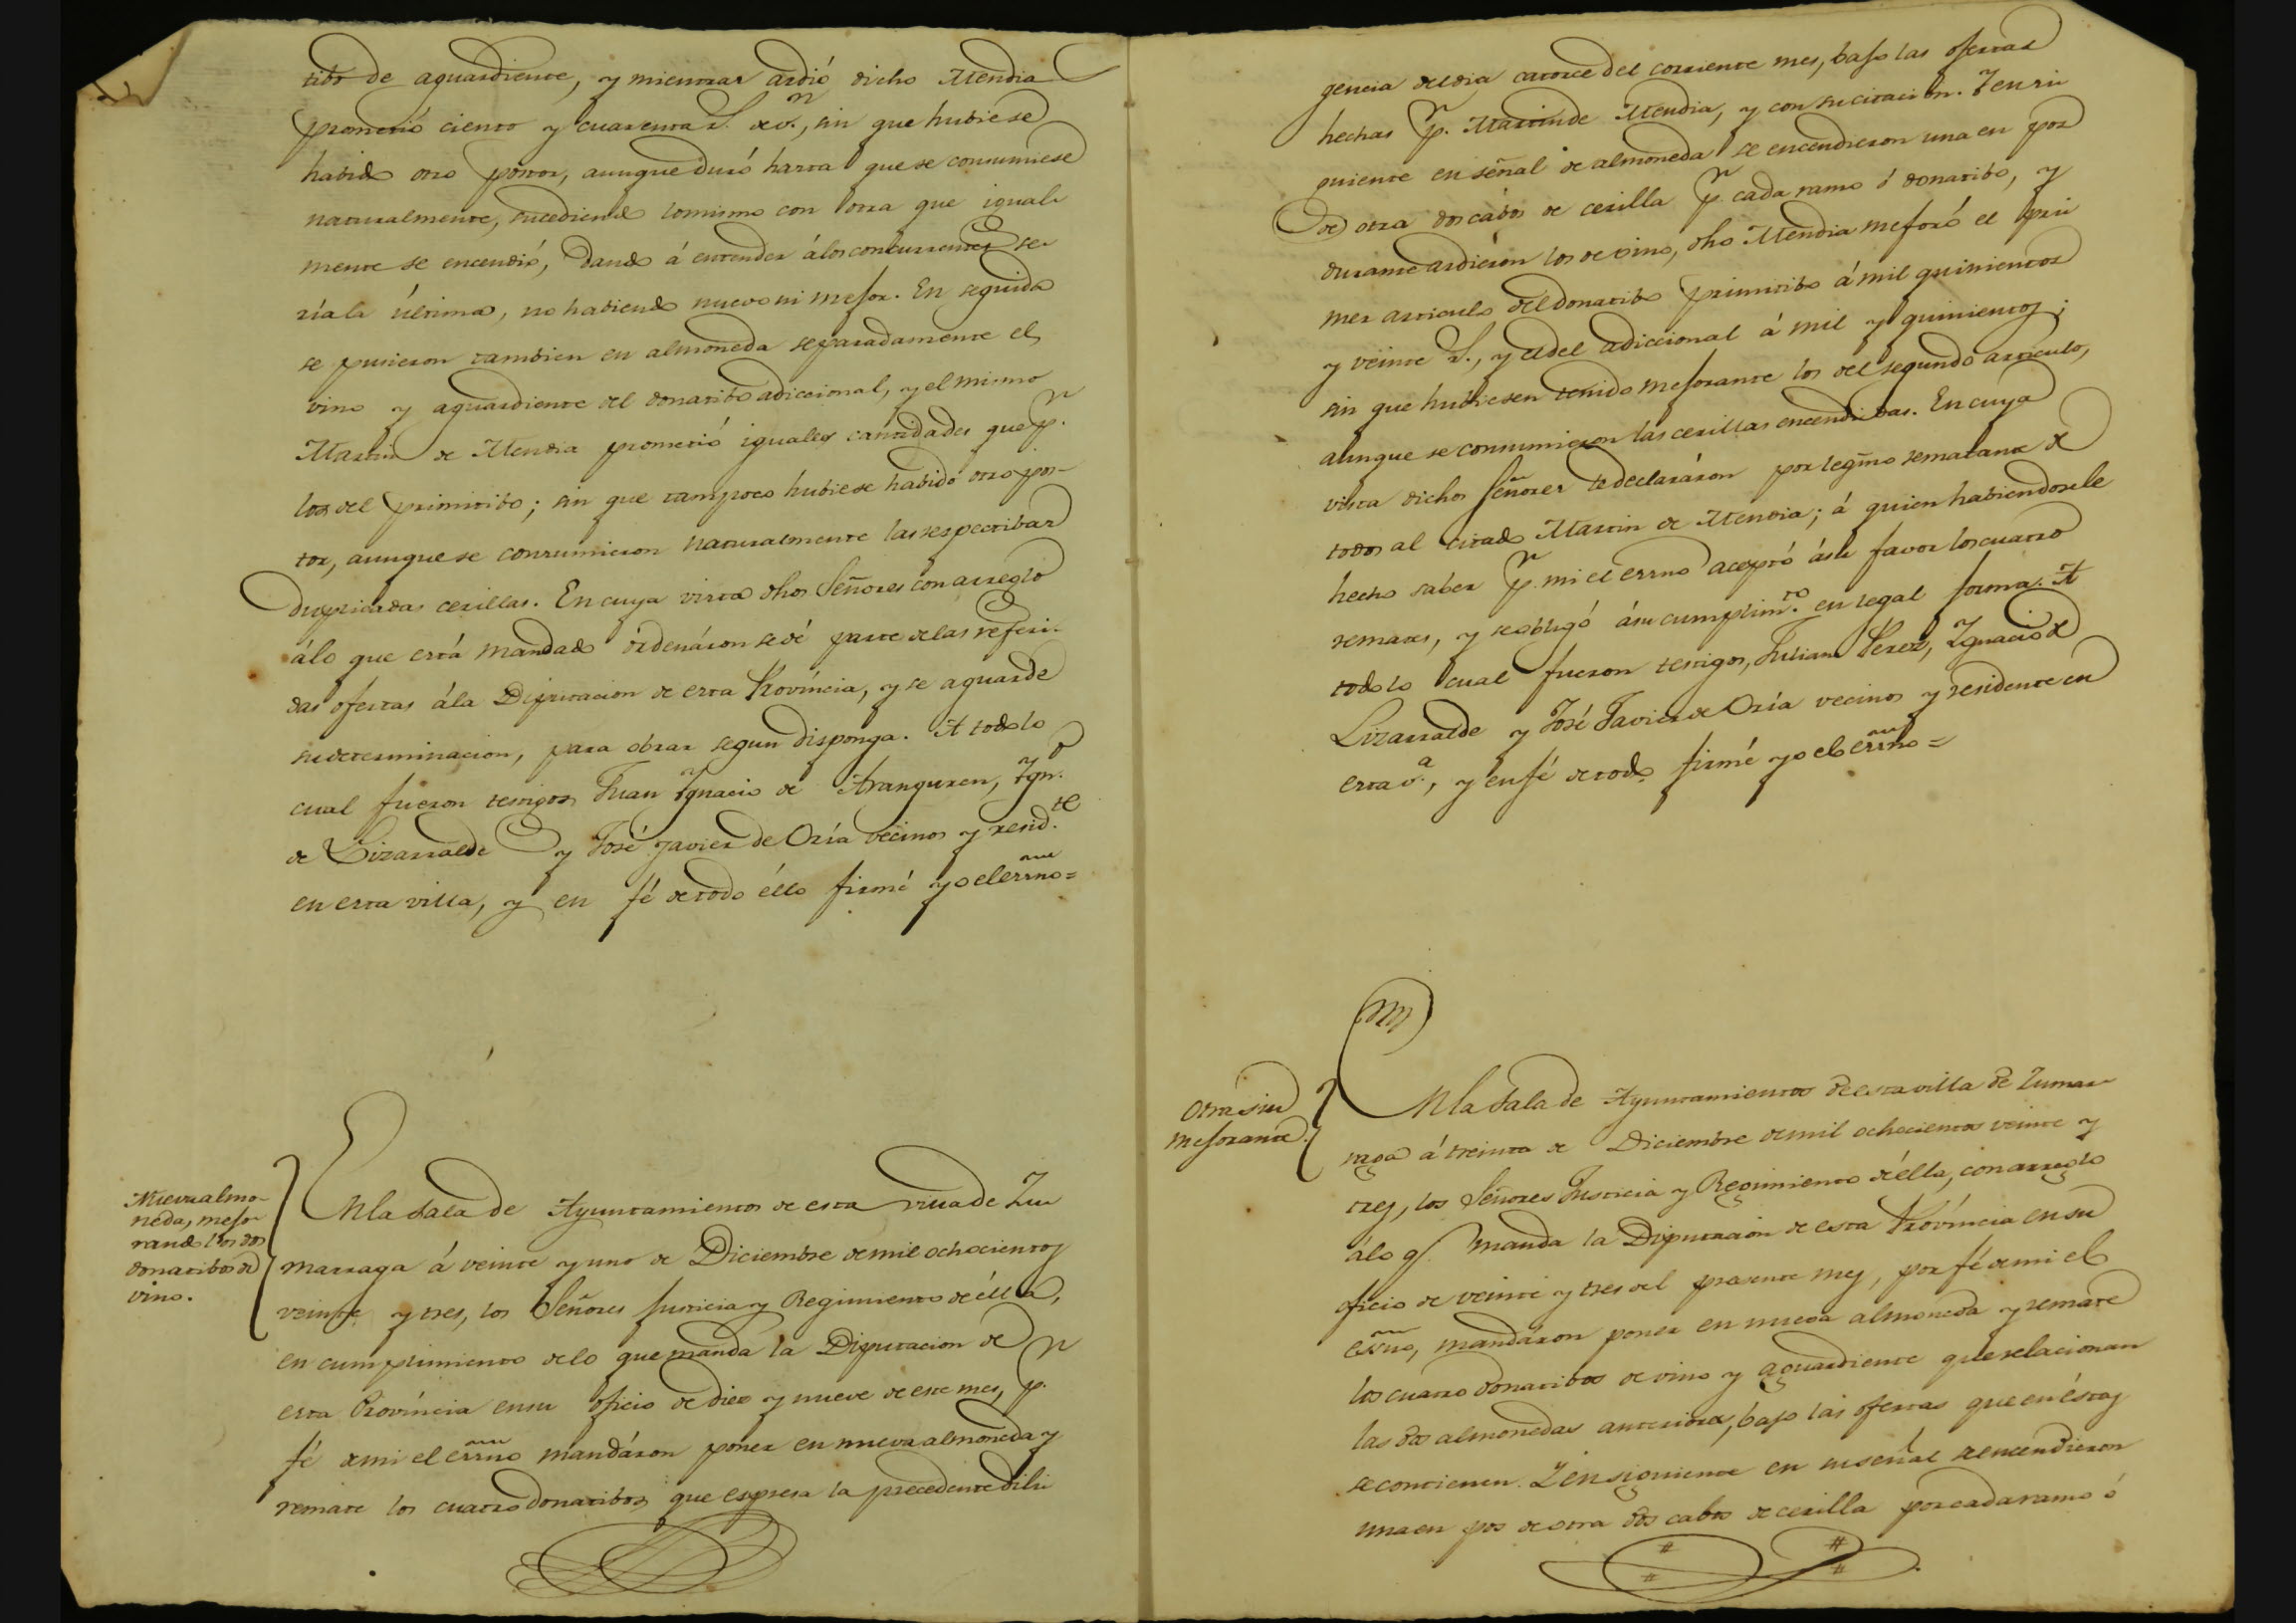 tibo de aguardiente, y mientras ardió dicho Mendia
prometió ciento y cuarenta r.ˢ de v.ⁿ, sin que hubiese
habido otro postor, aunque duró hasta que se consumiese
naturalmente, sucediendo lo mismo con otra que igual-
mente se encendió, dando á entender á los concurrentes se-
ría la última, no habiendo nuevo ni mejor. En seguida
se pusieron tambien en almoneda separadamente el
vino y aguardiente del donatibo adiccional, y el mismo
Martin de Mendia prometió iguales cantidades que p.ʳ
los del primitibo; sin que tampoco hubiese habido otro pos-
tor, aunque se consumieron naturalmente las respectibas
duplicadas cerillas. En cuya vista dhos Señores con arreglo
álo que está mandado ordenáron se dé parte de las referi-
das ofertas ála Diputacion de esta Provincia, y se aguarde
su determinacion, para obrar segun disponga. A todo lo
cual fueron testigos Juan Ygnacio de Aranguren, Ygn.º
de Lizarralde y José Javier de Oría vecinos y resid.ᵗᵉ
en esta villa, y en fé de todo éllo firmé yo el essno=
Nueva almo-
neda, mejo-
rando los dos
donatibos de
vino.
En la Sala de Ayuntamientos de esta villa de Zu-
marraga á veinte y uno de Diciembre de mil ochocientos
veinte y tres, los Señores Justicia y Regimiento de élla,
en cumplimiento de lo que manda la Diputacion de
esta Provincia en su oficio de diez y nueve de este mes, p.ʳ
fé de mi el essno mandáron poner en nueva almoneda y
remate los cuatro donatibos que espresa la precedente dili-
gencia del dia catorce del corriente mes, bajo las ofertas
hechas p.ʳ Martin de Mendia, y con su citacion. Y en si-
guiente en señal de almoneda se encendieron una en pos
de otra dos cabos de cerilla p.ʳ cada ramo ó donatibo, y
durante ardieron los de vino, dho Mendia mejoró el pri-
mer articulo del donatibo primitibo á mil quinientos
y veinte r.ˢ, y el del adiccional á mil y quinientos;
sin que hubiesen tenido mejorante los del segundo articulo,
aunque se consumieron las cerillas encendidas. En cuya
vista dichos Señores declaráron por legmo rematante de
todos al citado Martin de Mendia; á quien habiendosele
hecho saber p.ʳ mi el essno aceptó á su favor los cuatro
remates, y se obligó á su cumplim.ᵗᵒ en legal forma. A
todo lo cual fueron testigos, Julian Perez, Ygnacio de
Lizarralde y José Javier de Oría vecinos y residente en
esta v.ᵃ, y en fé de todo firmé yo el essno=
Otra sin
mejorante.
En la Sala de Ayuntamientos de esta villa de Zumar-
raga á treinta de Diciembre de mil ochocientos veinte y
tres, los Señores Justicia y Regimiento de élla, con arreglo
álo q.ᵉ manda la Diputacion de esta Provincia en su
oficio de veinte y tres del presente mes, por fé de mi el
essno, mandáron poner en nueva almoneda y remate
los cuatro donatibos de vino y aguardiente que relacionan
las dos almonedas anteriores, bajo las ofertas que en éstas
se contienen. Y en siguiente en su señal se encendieron
una en pos de otra dos cabos de cerilla por cada ramo ó